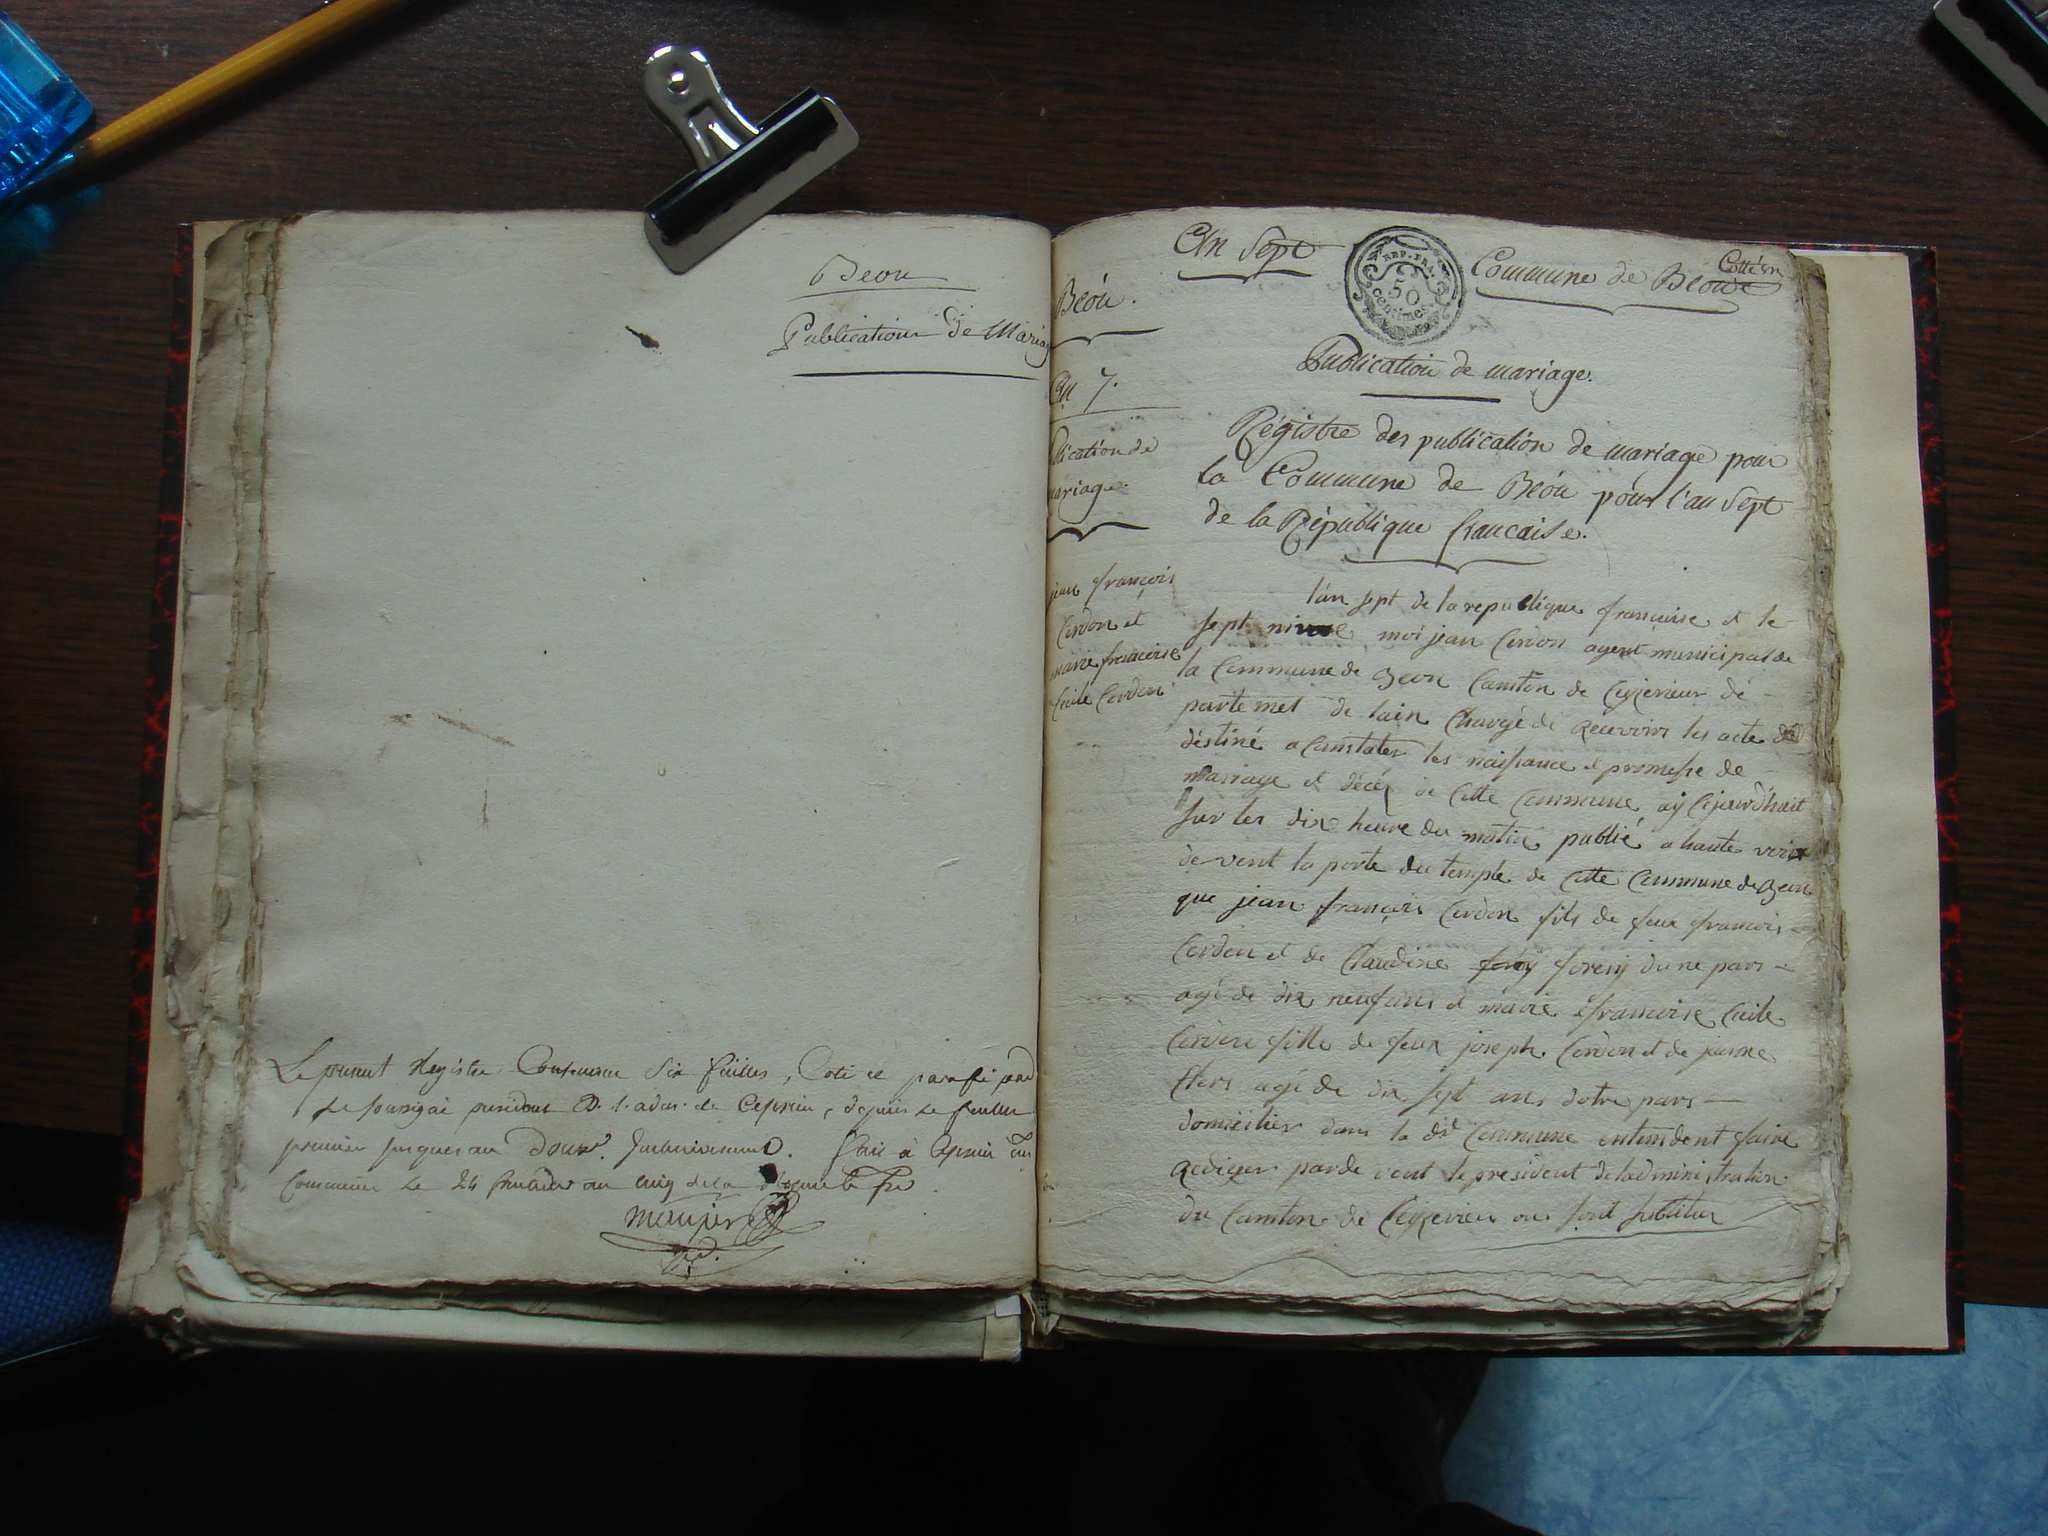 Beou
Publications de Mariag
Le present Registre Contenant Six feuilles, Coté et paraffé par
Le soussigné president D. l. adm. de Ceyzerieu, depuis Le feuillet
premier jusques au Douze. Inclusivement. fait à Ceyzerieu
Le 24 an cinq de la
Beòu.
An 7.
blication de
ariage.
jean françois
Cerdon et
marie francoise
Cecile Cerdon
An Sept
REP. FRA.
50
centimes
Commune de Beou
Cotté
Publication de mariage.
Régistre des publication de mariage pour
la Commune de Béou pour l'an Sept
de la République francaise.
l'an sept de la republique francaise et le
sept nivose moi jean Cerdon agent municipal de
la Commune de Beon Canton de Ceyzerieur dé
partemet de lain Chargé de Recevoir les acte
déstiné a Constater les naissance et promesse de
mariage et décéz de Cette Commune, ay Cejourd'huit
sur les dix heure du matin publié a haute voix
de vent la porte du temple de Cette Commune de Beon
que jean françois Cerdon fils de feux francois
Cerdon et de Claudine foreij du ne pars
agé de dix neuf ans et marie francoise Cecile
Cerdon fille de feux joseph Cerdon et de janne
agé de dix sept ans dotre pars
domicilier dans la dt Commune entendent faire
Rediger par de vent le president de ladministration
du Canton de Ceyzerieu ou sont